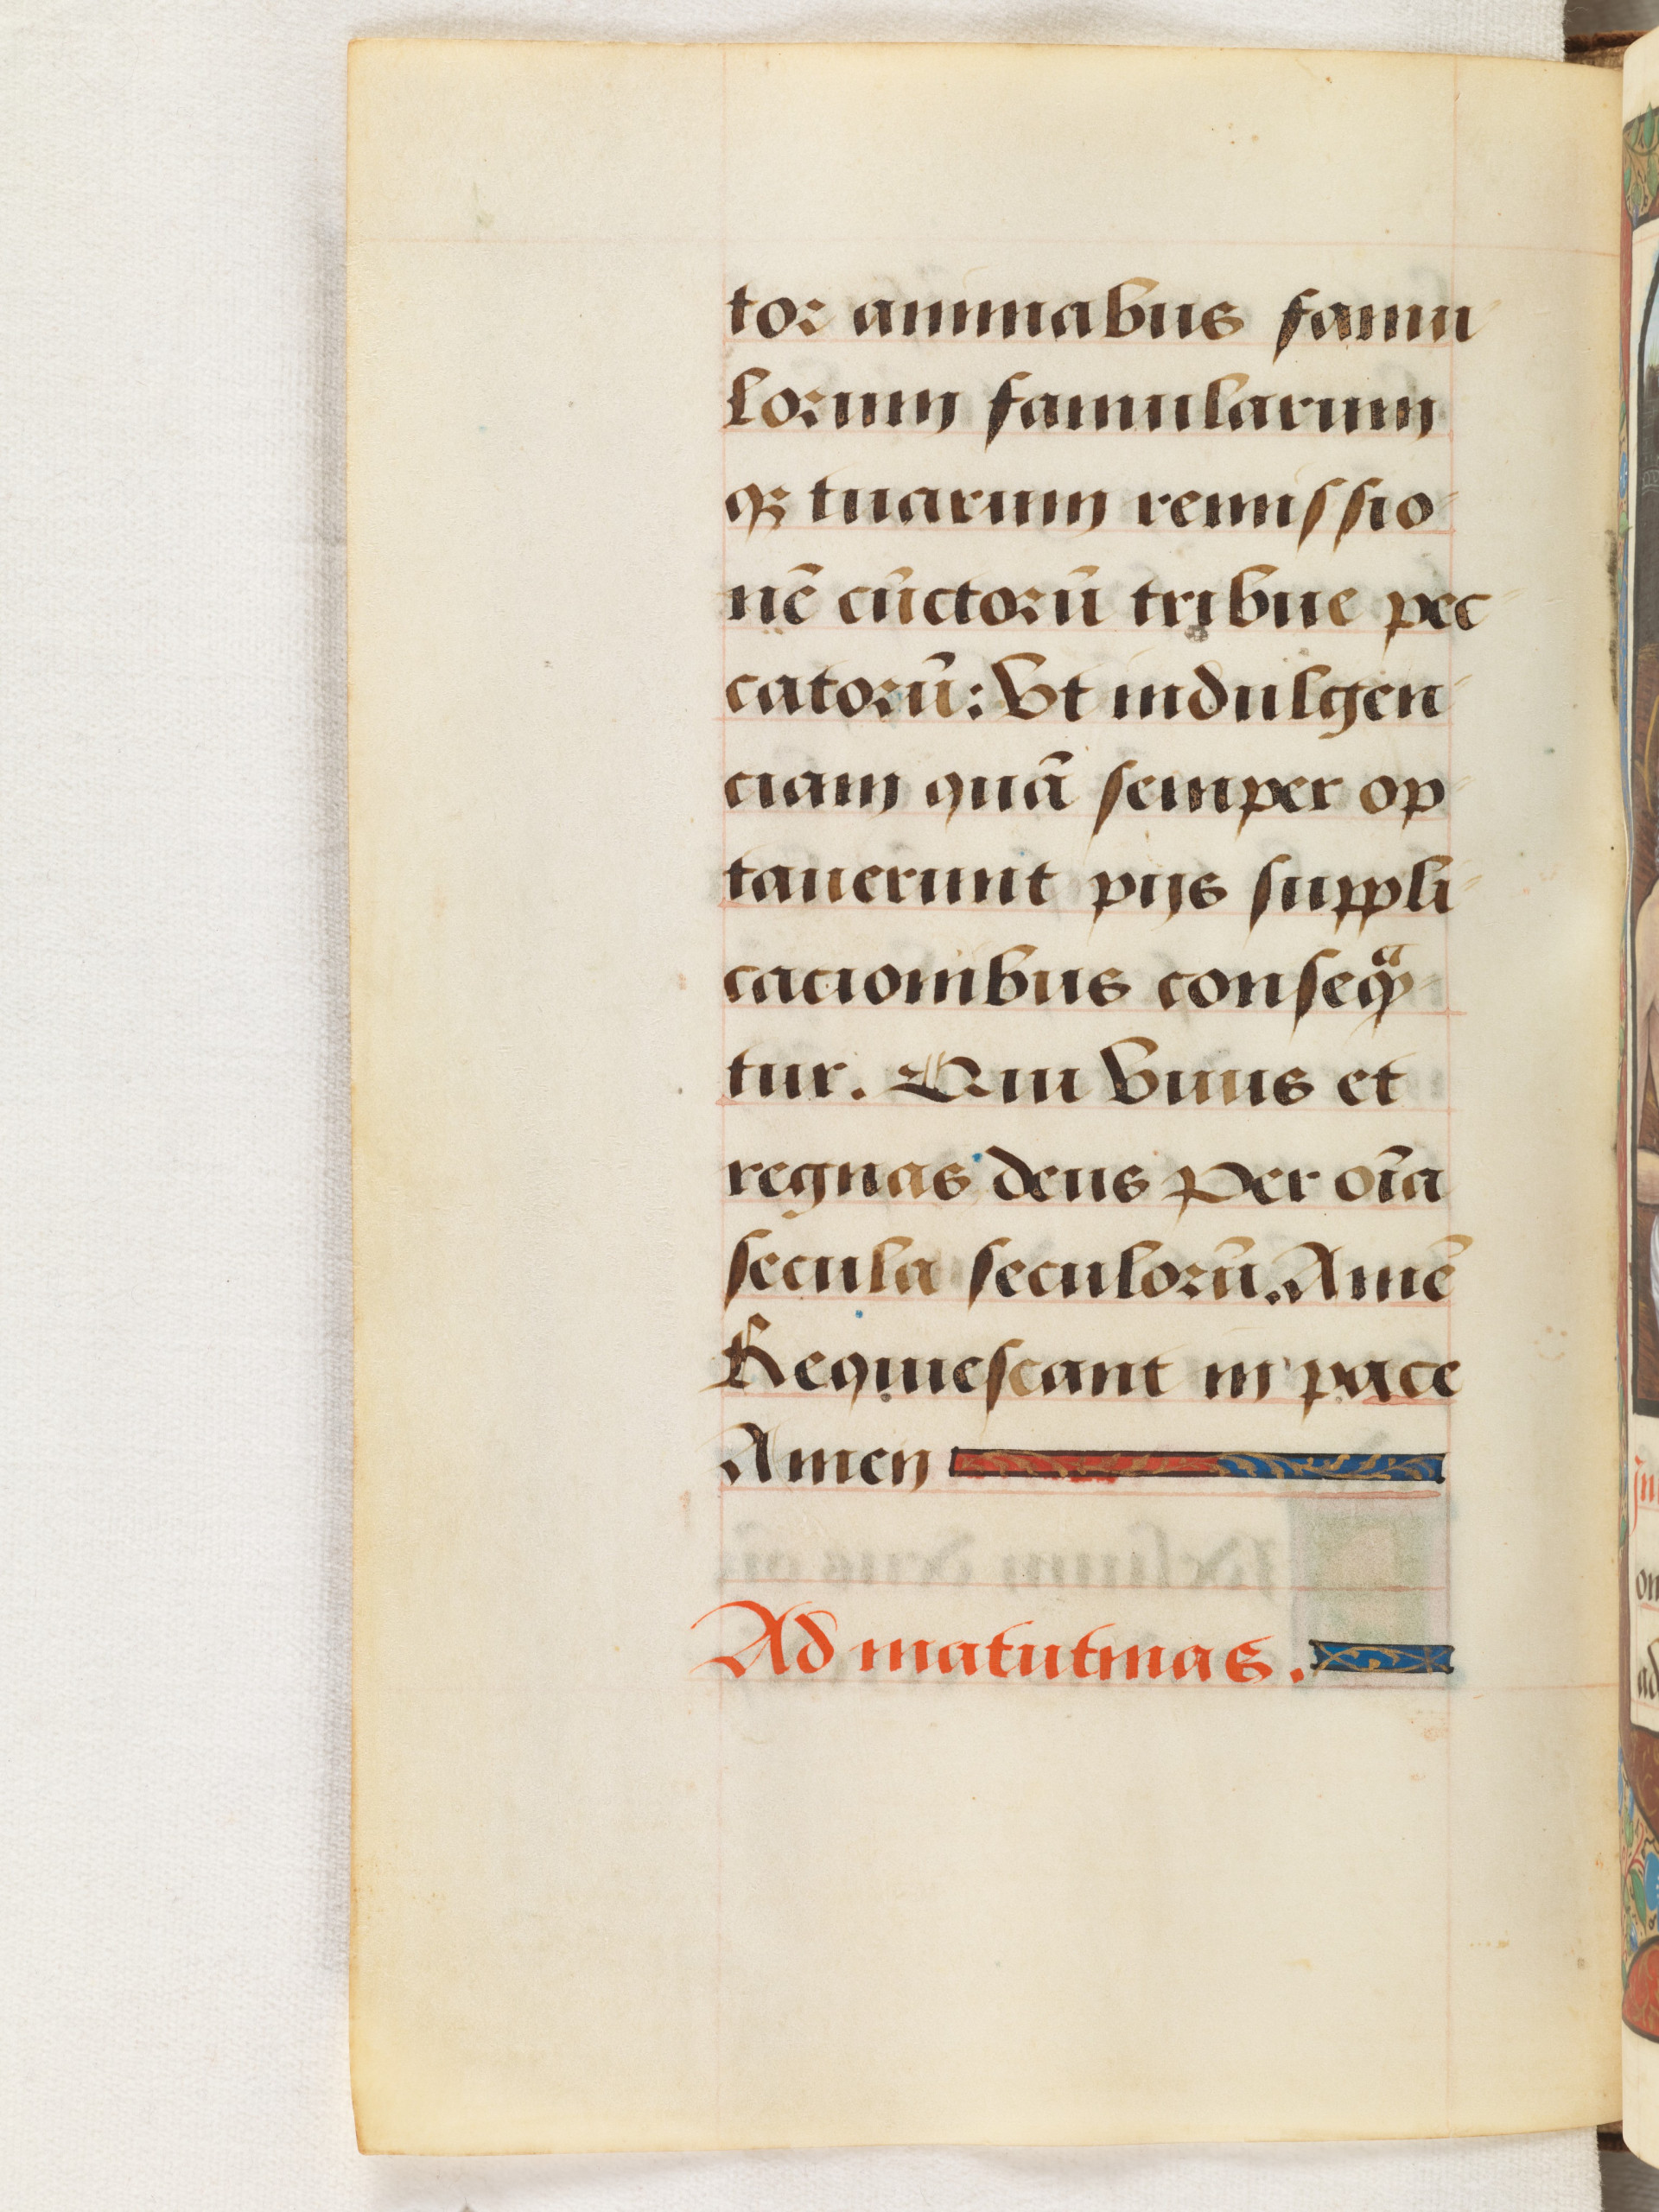 tor animabus famu
lorum famularum
qȝ tuarum remissio
nē cūctorū tribue pec
catorū: Vt indulgen
ciam quā semper op
tauerunt pijs suppli
cacionibus conseqͣ
tur. Qui viuis et
regnas deus Per oīa
secula seculorū. Amē
Requiescant in pace
Amen
Ad matutinas.